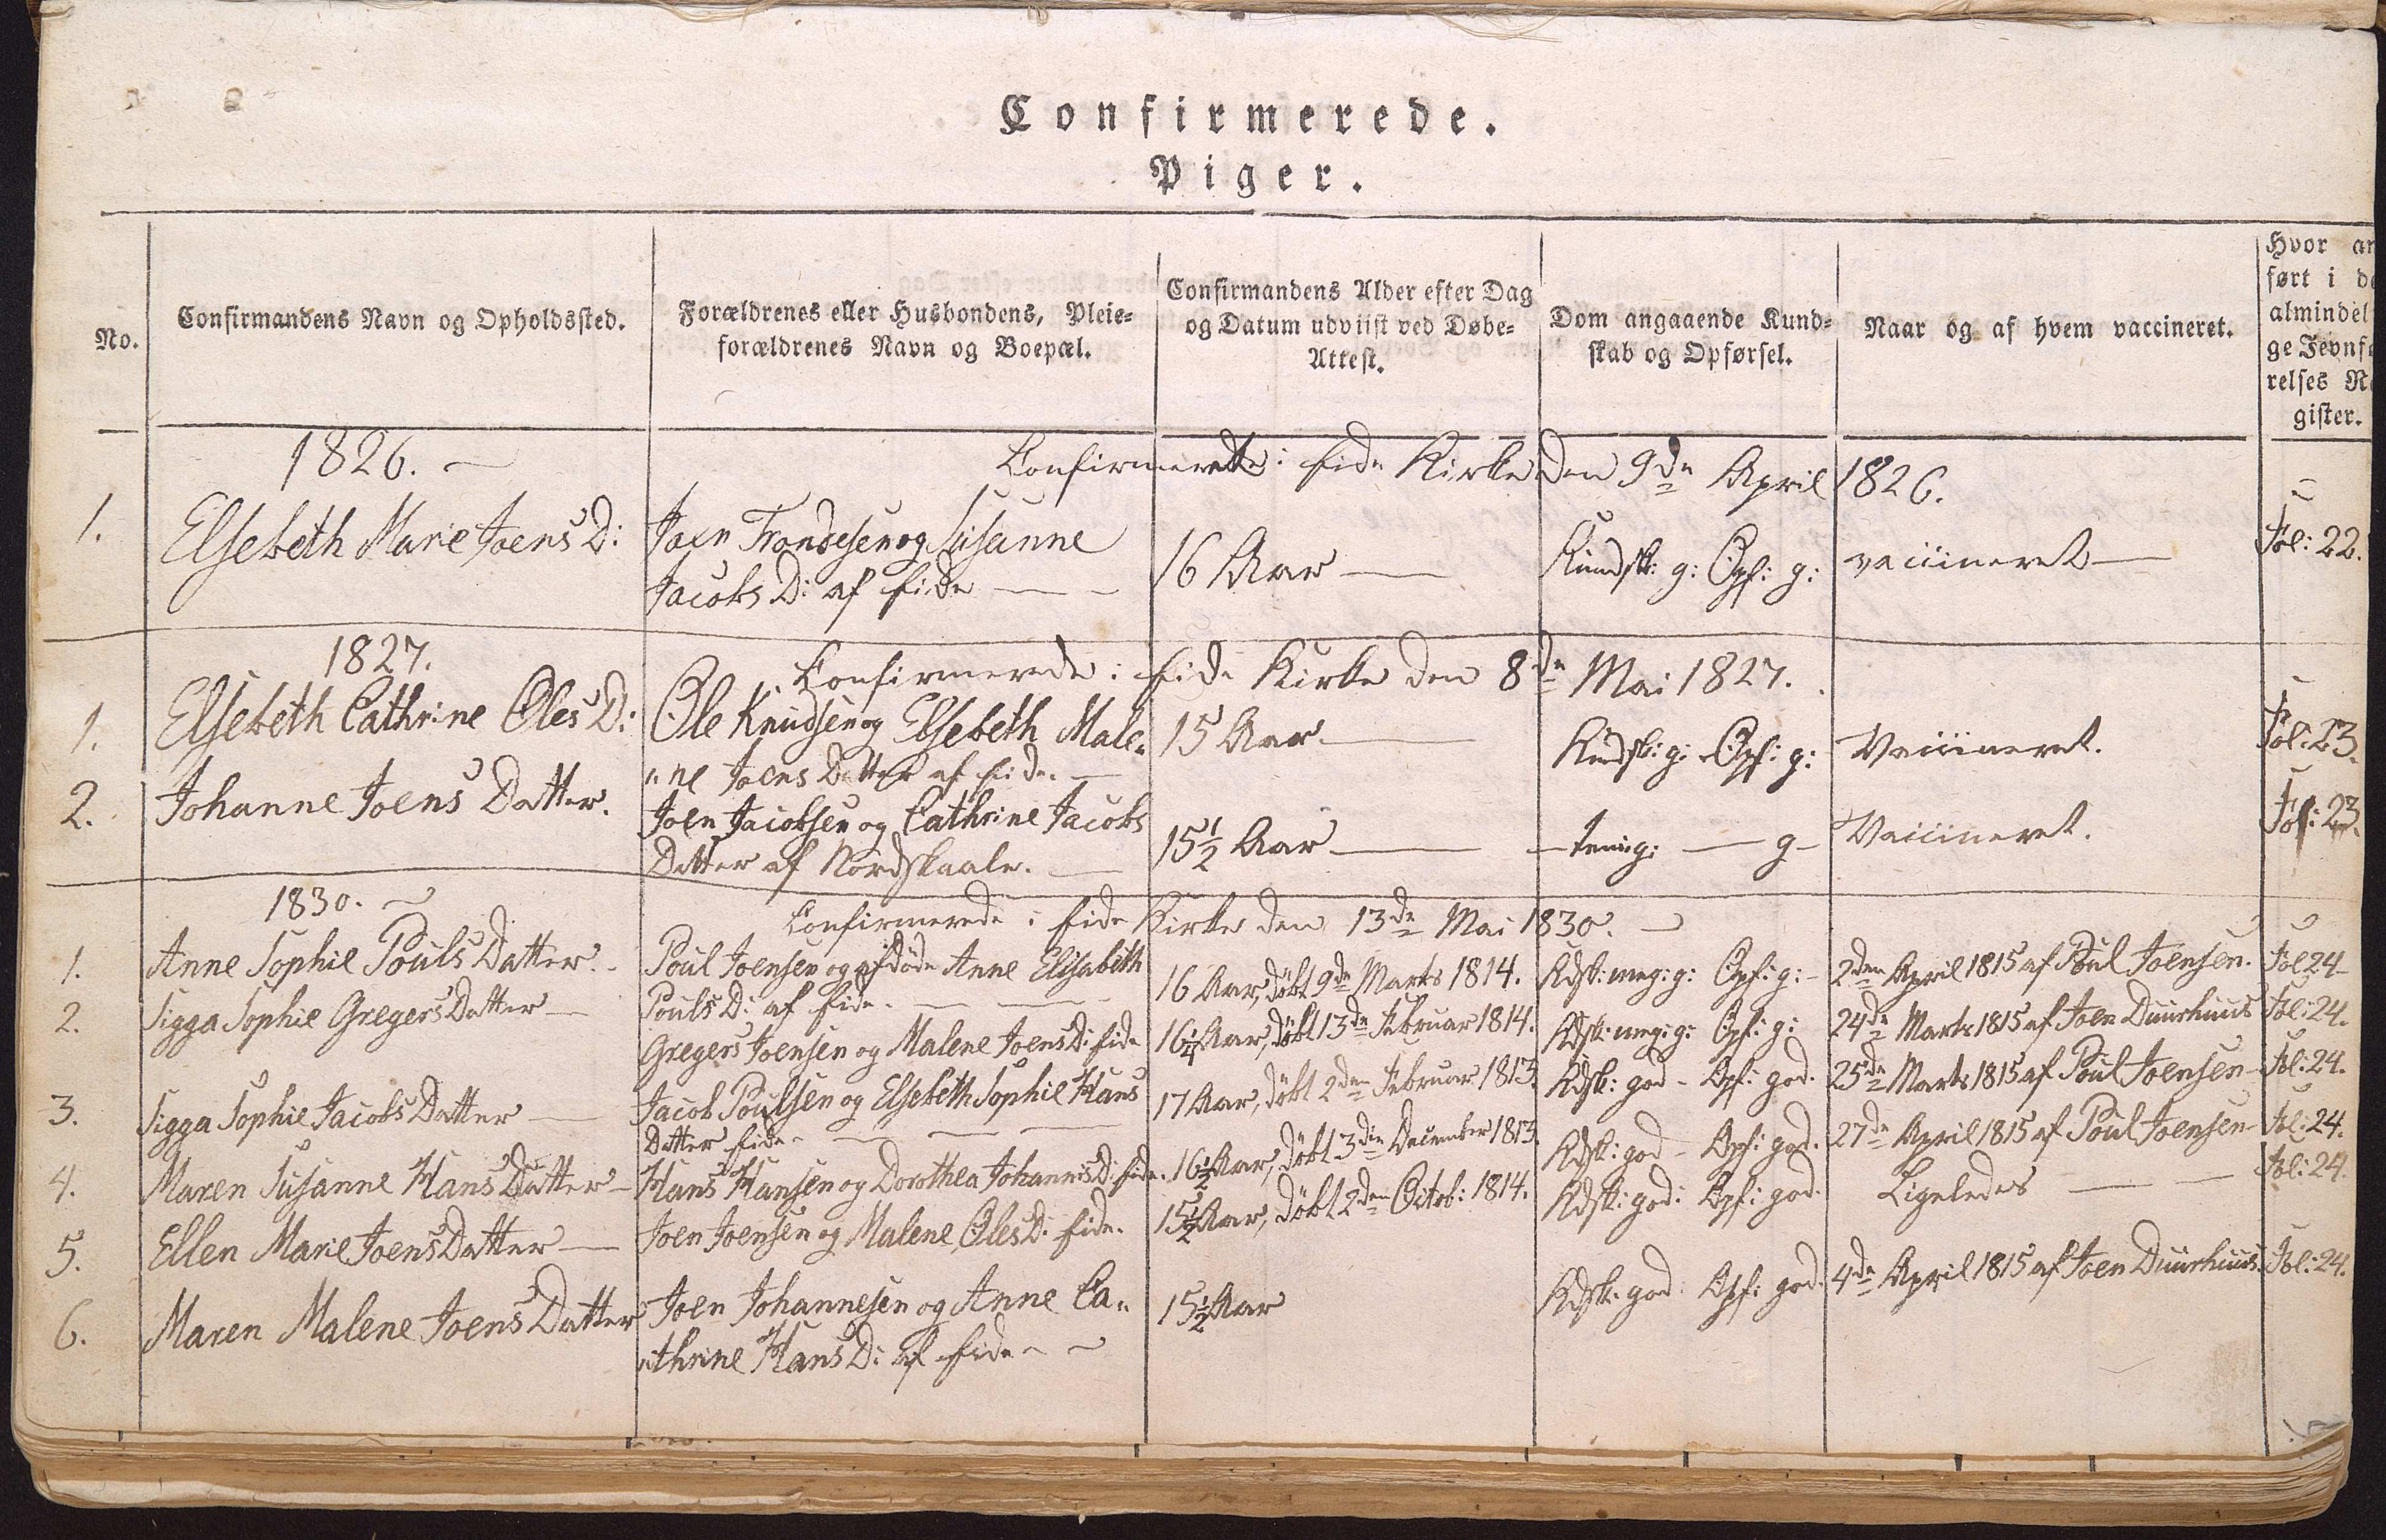 Confirmerede.
Piger.
No.
Confirmandens Navn og Opholdssted.
Forældrenes eller Husbondens, Pleie-
forældrenes Navn og Boepæl.
Confirmandens Alder efter Dag
og Datum udviist ved Døbe-
Attest.
Dom angaaende Kund-
skab og Opførsel.
Naar og af hvem vaccineret.
Hvor an
ført i de
almindel
ge Jevnfø
relses Re
gister.
1826. Confirmerede i Eide Kirke den 9de April 1826.
1. Elsebeth Marie Joens D: Joen Trondesen og Susanne 16 Aar Kundsk: g: Opf: g: vaccineret Fol: 22.
Jacobs D: af Eide
1827. Confirmerede i Eide Kirke den 8de Mai 1827.
1. Elsebeth Cathrine Oles D: Ole Knudsen og Elsebeth Male„ 15 Aar Kundsk: g: Opf: g: Vaccineret. Fol: 23.
„ne Joens Datter af Eide.
2. Johanne Joens Datter. Joen Jacobsen og Cathrine Jacobs 15½ Aar g Vaccineret. Fol: 23.
Datter af Nordskaale.
1830. Confirmerede i Eide Kirke den 13de Mai 1830.
1. Anne Sophie Pouls Datter. Poul Joensen og afdøde Anne Elisabeth 16 Aar, døbt 9de Marts 1814. Kdsk: meg: g: Opf: g: 2den April 1815 af Poul Joensen. Fol 24
Pouls D: af Eide.
2. Sigga Sophie Gregers Datter Gregers Joensen og Malene Joens D: Eide 16¼ Aar, døbt 13de Februar 1814. Kdsk: meg: g: Opf: g: 24de Marts 1815 af Joen Duurhuus Fol: 24.
3. Sigga Sophie Jacobs Datter Jacob Poulsen og Elsebeth Sophie Hans 17 Aar, døbt 2den Februar 1813. Kdsk: god - Opf: god. 25de Marts 1815 af Poul Joensen Fol: 24.
Datter Eide
4. Maren Susanne Hans Datter Hans Hansen og Dorothea Johannis D: Eide. 16½ Aar, døbt 3die December 1813. Kdsk: god - Opf: god. 27de April 1815 af Poul Joensen Fol: 24.
5. Ellen Marie Joens Datter Joen Joensen og Malene Oles D: Eide. 15½ Aar, døbt 2den Octob: 1814. Kdsk: god: Opf: god. Ligeledes Fol: 24.
6. Maren Malene Joens Datter Joen Johannesen og Anne Ca„ 15½ Aar Kdsk: god: Opf: god. 4de April 1815 af Joen Duurhuus. Fol: 24.
„thrine Hans D: af Eide